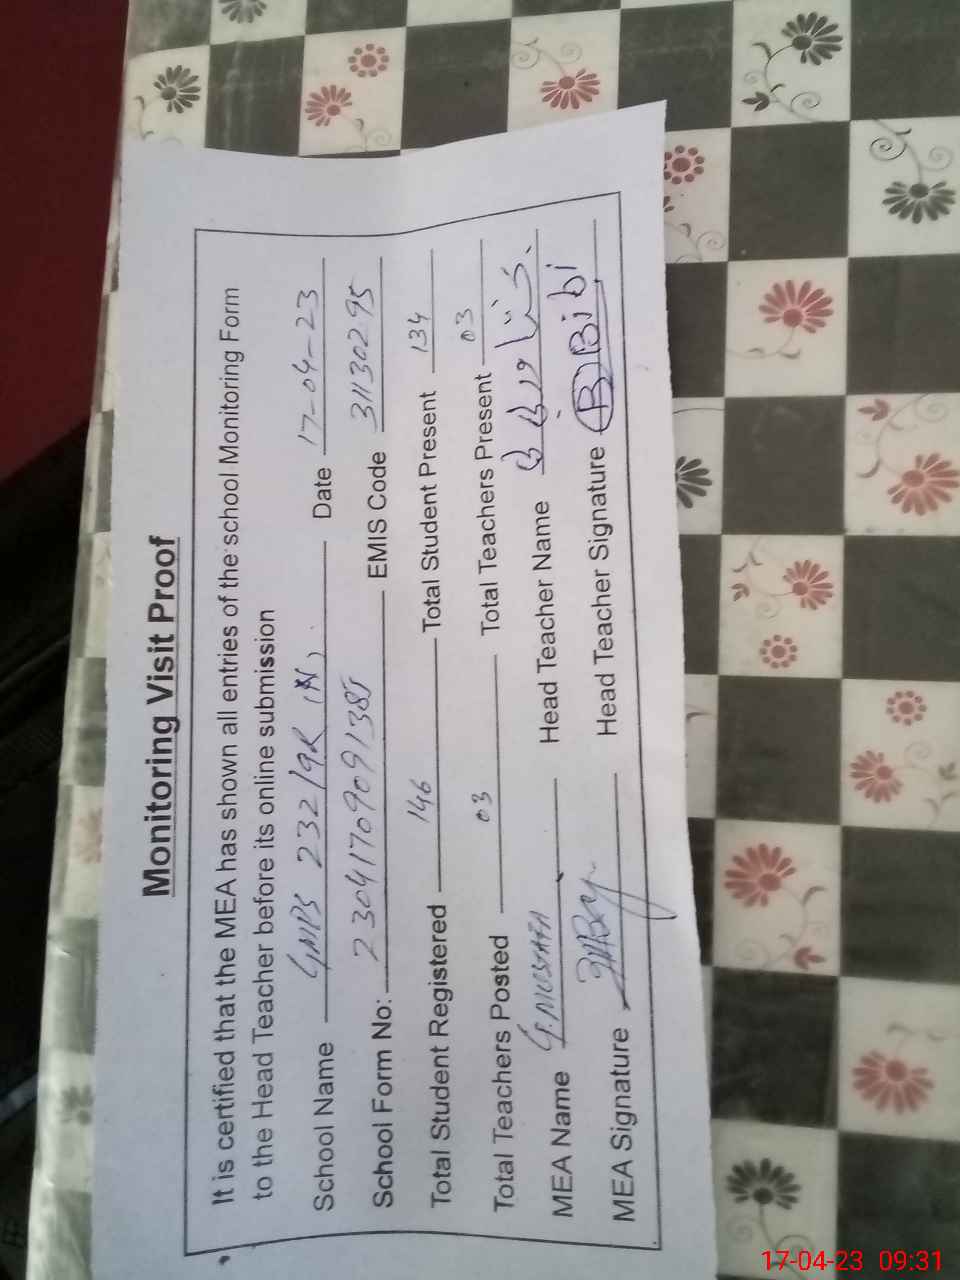 Monitoring Visit Proof
It is certified that the MEA has shown all entries of the school Monitoring Form
to the Head Teacher before its online submission
School Name GMPS 232/9R Date 17-04-23
School Form No: 23041709091385 EMIS Code 31130295
Total Student Registered 146 Total Student Present 134
Total Teachers Posted 03 Total Teachers Present 03
MEA Name G. MUSTAFA Head Teacher Name
MEA Signature Head Teacher Signature B Bibi
17-04-23 09:31